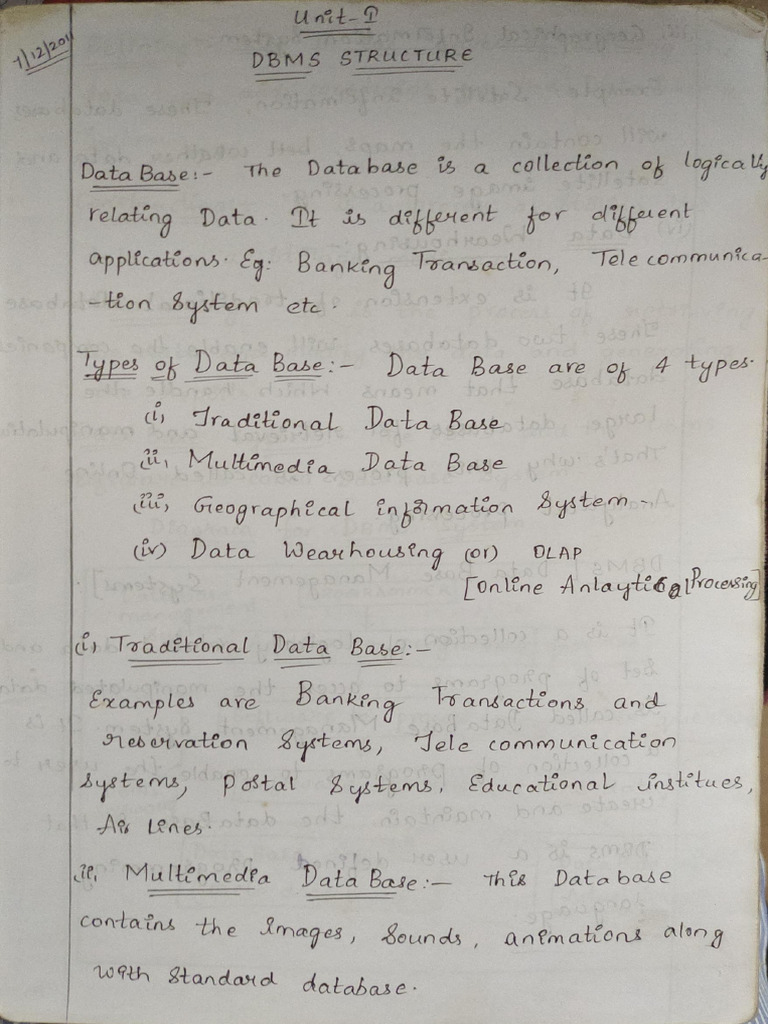 Unit-I
7/12/2011
DBMS STRUCTURE
Data Base:- The Database is a collection of logically
relating Data. It is different for different
applications. Eg: Banking Transaction, Tele communica-
-tion System etc.
Types of Data Base:- Data Base are of 4 types.
(i) Traditional Data Base
ii, Multimedia Data Base
(iii) Geographical information System -
(iv) Data Wearhousing (or) OLAP
[Online Anlaytical Processing]
(i) Traditional Data Base:-
Examples are Banking Transactions and
reservation Systems, Tele communication
Systems, Postal Systems, Educational institues,
Air Lines.
ii, Multimedia Data Base:- This Database
contains the Images, Sounds, animations along
with Standard database.